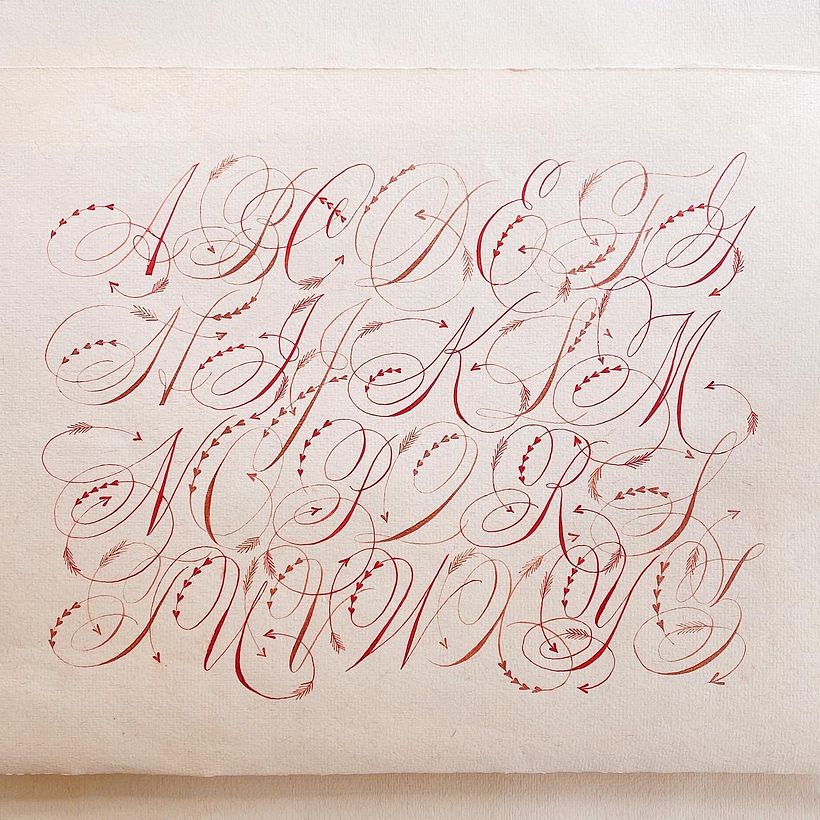 A B C D E F G
H I J K L M
N O P Q R S
T U V W X Y Z